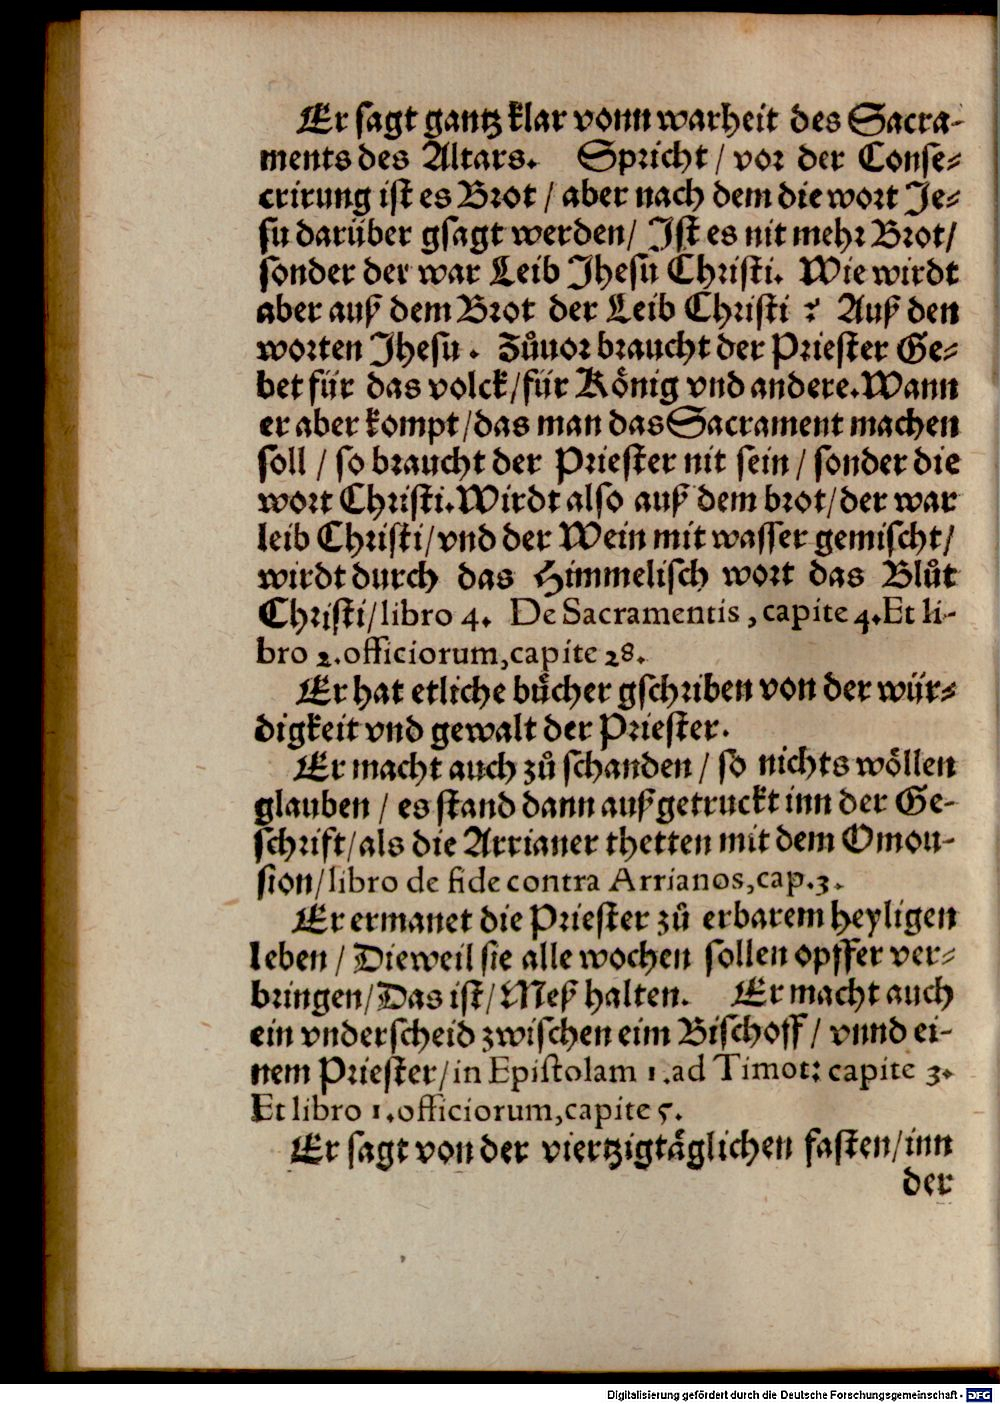 Er sagt gantz klar vonn warheit des Sacra-
ments des Altars. Spricht / vor der Conse-
crirung ist es Brot / aber nach dem die wort Je-
su darüber gsagt werden / Ist es nit mehr Brot /
sonder der war Leib Jhesu Christi. Wie wirdt
aber auß dem Brot der Leib Christi? Auß den
worten Jhesu. Zůuor braucht der Priester Ge-
bet für das volck / für König vnd andere. Wann
er aber kompt / das man das Sacrament machen
soll / so braucht der Priester nit sein / sonder die
wort Christi. Wirdt also auß dem brot / der war
leib Christi / vnd der Wein mit wasser gemischt /
wirdt durch das Himmelisch wort das Blůt
Christi / libro 4. De Sacramentis, capite 4. Et li-
bro 2. officiorum, capite 28.
Er hat etliche bücher gschriben von der wür-
digkeit vnd gewalt der Priester.
Er macht auch zů schanden / so nichts wöllen
glauben / es stand dann außgetruckt inn der Ge-
schrift / als die Arrianer thetten mit dem Omou-
sion / libro de fide contra Arrianos, cap. 3.
Er ermanet die Priester zů erbarem heyligen
leben / Dieweil sie alle wochen sollen opffer ver-
bringen / Das ist / Meß halten. Er macht auch
ein vnderscheid zwischen eim Bischoff / vnnd ei-
nem Priester / in Epistolam 1. ad Timot: capite 3.
Et libro 1. officiorum, capite 5.
Er sagt von der viertzigtäglichen fasten / inn
der
Digitalisierung gefördert durch die Deutsche Forschungsgemeinschaft - DFG